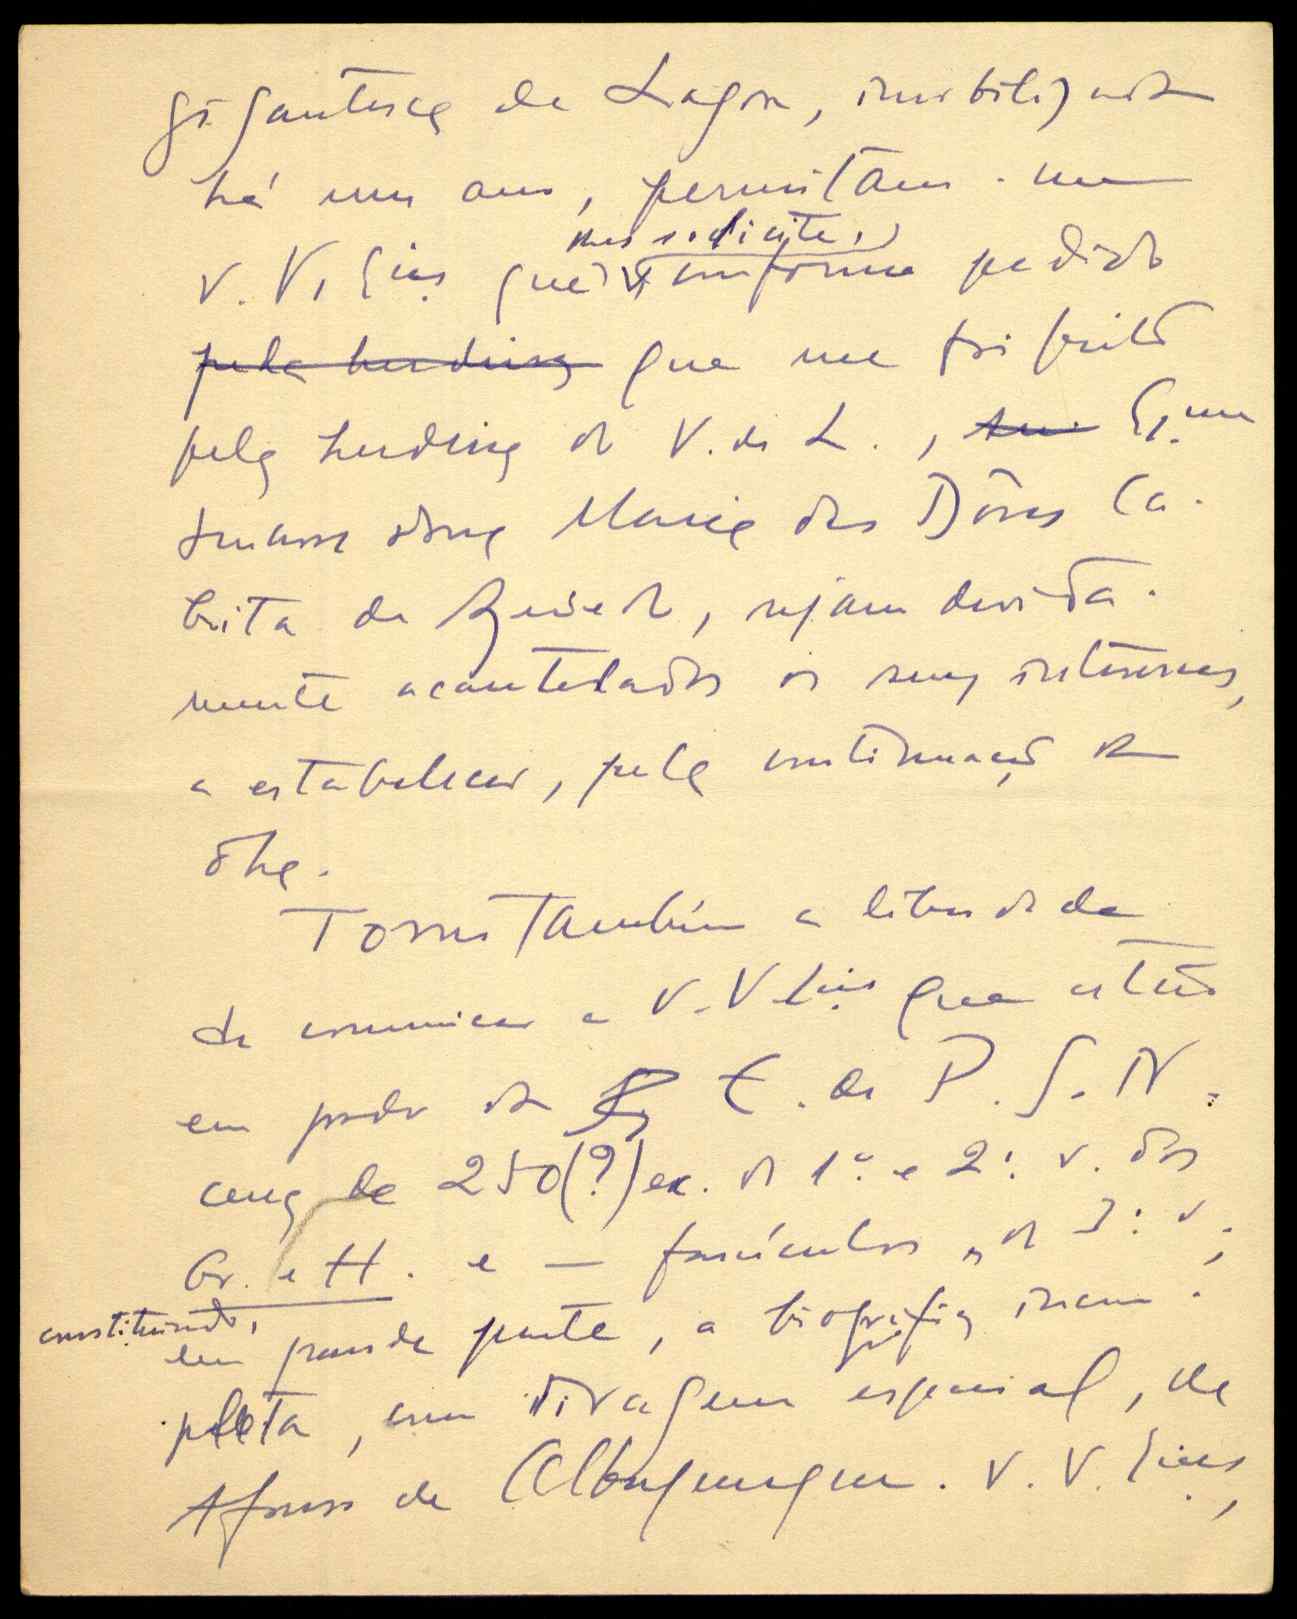 gigantesca de Lagoa, imobilizada
há um ano, permitam-me
V. V. Ex.as que lhes solicite,
conforme pedido
pela herdeira que me foi feito
pela herdeira do V. de L., Ex.ma
Senhora dona Maria das Dôres Ca-
brita de Azevedo, sejam devida-
mente acautelados os seus interesses,
a estabelecer, pela continuação da
obra.
Tomo também a liberdade
de comunicar a V. V. Ex.as que estão
em poder da E. de P. S. N.
cerca de 250(?) ex. do 1.º e 2.º v. dos
Gr. e H. e — fascículos do 3.º v.,
constituindo,
em grande parte, a biografia incom-
pleta, com tiragem especial, de
Afonso de Albuquerque. V. V. Ex.as,